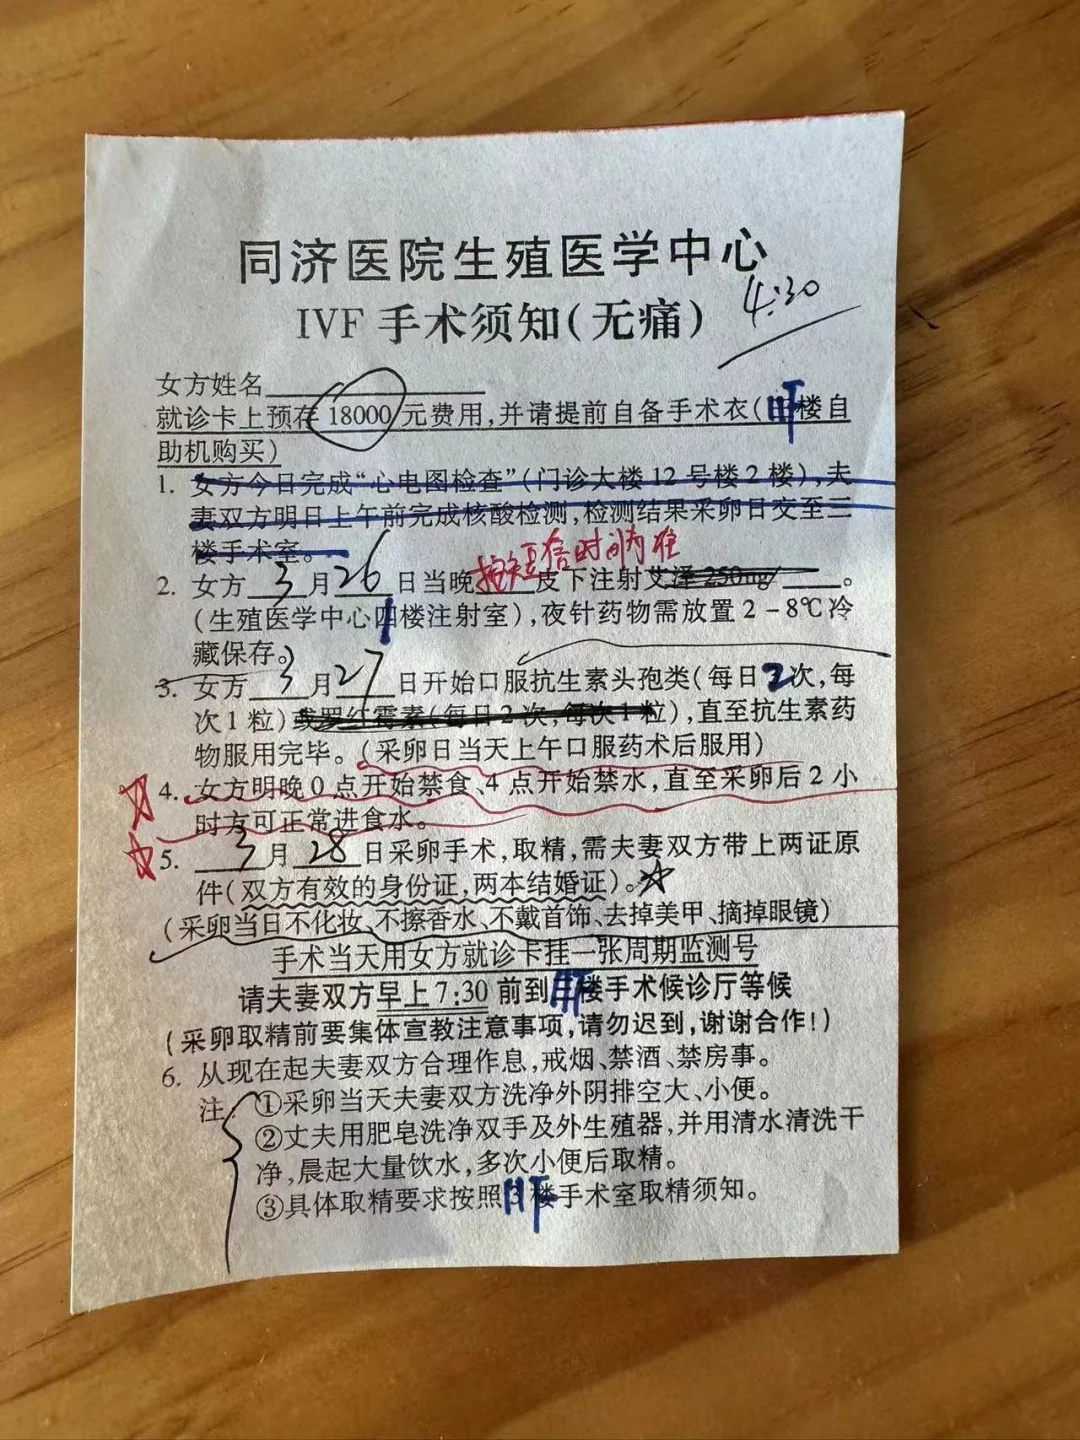 同济医院生殖医学中心
IVF 手术须知(无痛)
4:30
女方姓名
就诊卡上预存 18000 元费用,并请提前自备手术衣( 楼自
助机购买)
1. 女方今日完成“心电图检查”(门诊大楼 12 号楼 2 楼),夫
妻双方明日上午前完成核酸检测,检测结果采卵日交至三
楼手术室。
2. 女方 3 月 26 日当晚 按短信时间为准 皮下注射艾泽 250mg/ 。
(生殖医学中心四楼注射室),夜针药物需放置 2-8℃冷
藏保存。
3. 女方 3 月 27 日开始口服抗生素头孢类(每日 2 次,每
次 1 粒)或罗红霉素(每日 2 次,每次 1 粒),直至抗生素药
物服用完毕。(采卵日当天上午口服药术后服用)
4. 女方明晚 0 点开始禁食、4 点开始禁水,直至采卵后 2 小
时方可正常进食水。
5. 3 月 28 日采卵手术,取精,需夫妻双方带上两证原
件(双方有效的身份证,两本结婚证)。
(采卵当日不化妆、不擦香水、不戴首饰、去掉美甲、摘掉眼镜)
手术当天用女方就诊卡挂一张周期监测号
请夫妻双方早上 7:30 前到 楼手术候诊厅等候
(采卵取精前要集体宣教注意事项,请勿迟到,谢谢合作!)
6. 从现在起夫妻双方合理作息,戒烟、禁酒、禁房事。
注: ①采卵当天夫妻双方洗净外阴排空大、小便。
②丈夫用肥皂洗净双手及外生殖器,并用清水清洗干
净,晨起大量饮水,多次小便后取精。
③具体取精要求按照 3 楼手术室取精须知。